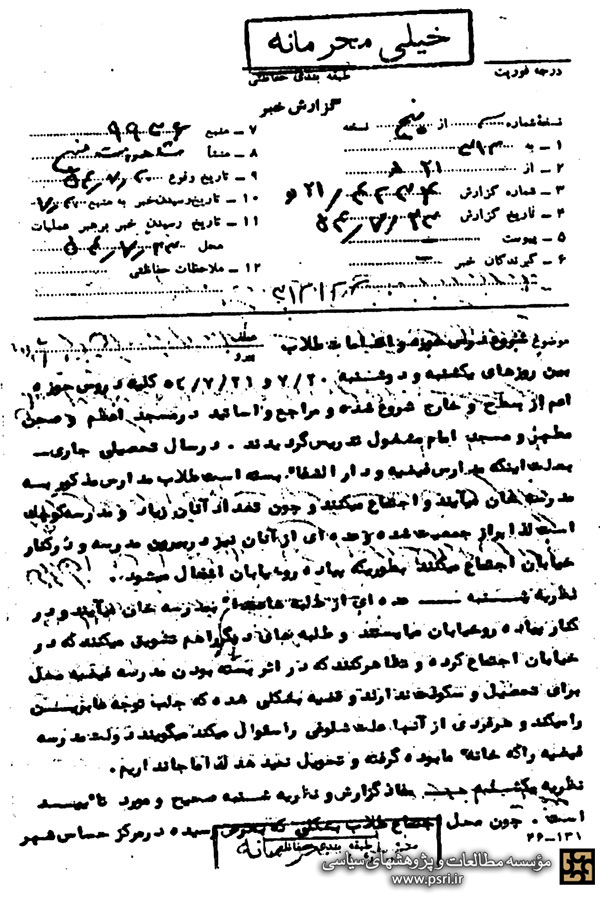 خیلی محرمانه
طبقه بندی حفاظتی
درجه فوریت
گزارش خبر
نسخهٔ شماره از پنج نسخه
۱ – به ۳۱۲
۲ – از ۲۱ ه
۳ – شماره گزارش / ۲۱ ه
۴ – تاریخ گزارش
۵ – پیوست
۶ – گیرندگان خبر
۷ – منبع ۹۹۳۶
۸ – منشأ
۹ – تاریخ وقوع
۱۰ – تاریخ رسیدن خبر به منبع
۱۱ – تاریخ رسیدن خبر برهبر عملیات
محل
۱۲ – ملاحظات حفاظتی
موضوع شروع دروس حوزه و اجتماعات طلاب
بین روزهای یکشنبه و دوشنبه ۷/۲۰ و ۵۴/۷/۲۱ کلیه دروس حوزه
اعم از سطح و خارج شروع شده و مراجع و اساتید درمسجد اعظم و صحن
مطهر و مسجد امام مشغول تدریس گردیدند . درسال تحصیلی جاری
بعلت اینکه مدارس فیضیه و دار الشفاء بسته است طلاب مدارس مذکور بسه
مدرسه خان میآیند و اجتماع میکنند و چون تعداد آنان زیاد و مدرسه کوچک
است لذا براثر جمعیت شده عده ای از آنان نیز در بیرون مدرسه و در کنار
خیابان اجتماع میکنند بطوریکه پیاده رو خیابان اشغال میشود .
نظریه شنبه عده ای از طلبه ها عمدا" بمدرسه خان میآیند و در
کنار پیاده رو خیابان میایستند و طلبه های دیگر را هم تشویق میکنند که در
خیابان اجتماع کرده و تظاهر کنند که در اثر بسته بودن مدرسه فیضیه محل
برای تحصیل و سکونت ندارند و قضیه بشکلی شده که جلب توجه عابرین
را میکند و هر فردی از آنها علت شلوغی را سئوال میکند میگویند دولت مدرسه
فیضیه را که خانه ما بوده گرفته و تحویل نمیدهد لذا ما جا نداریم .
نظریه یکشنبه مفاد گزارش و نظریه شنبه صحیح و مورد تائید
است . چون محل اجتماع طلاب بشکلی که بعرض رسیده در مرکز حساس شهر
۲۶–۱۳۱
طبقه بندی حفاظتی
محرمانه
مؤسسه مطالعات و پژوهشهای سیاسی
www.psri.ir